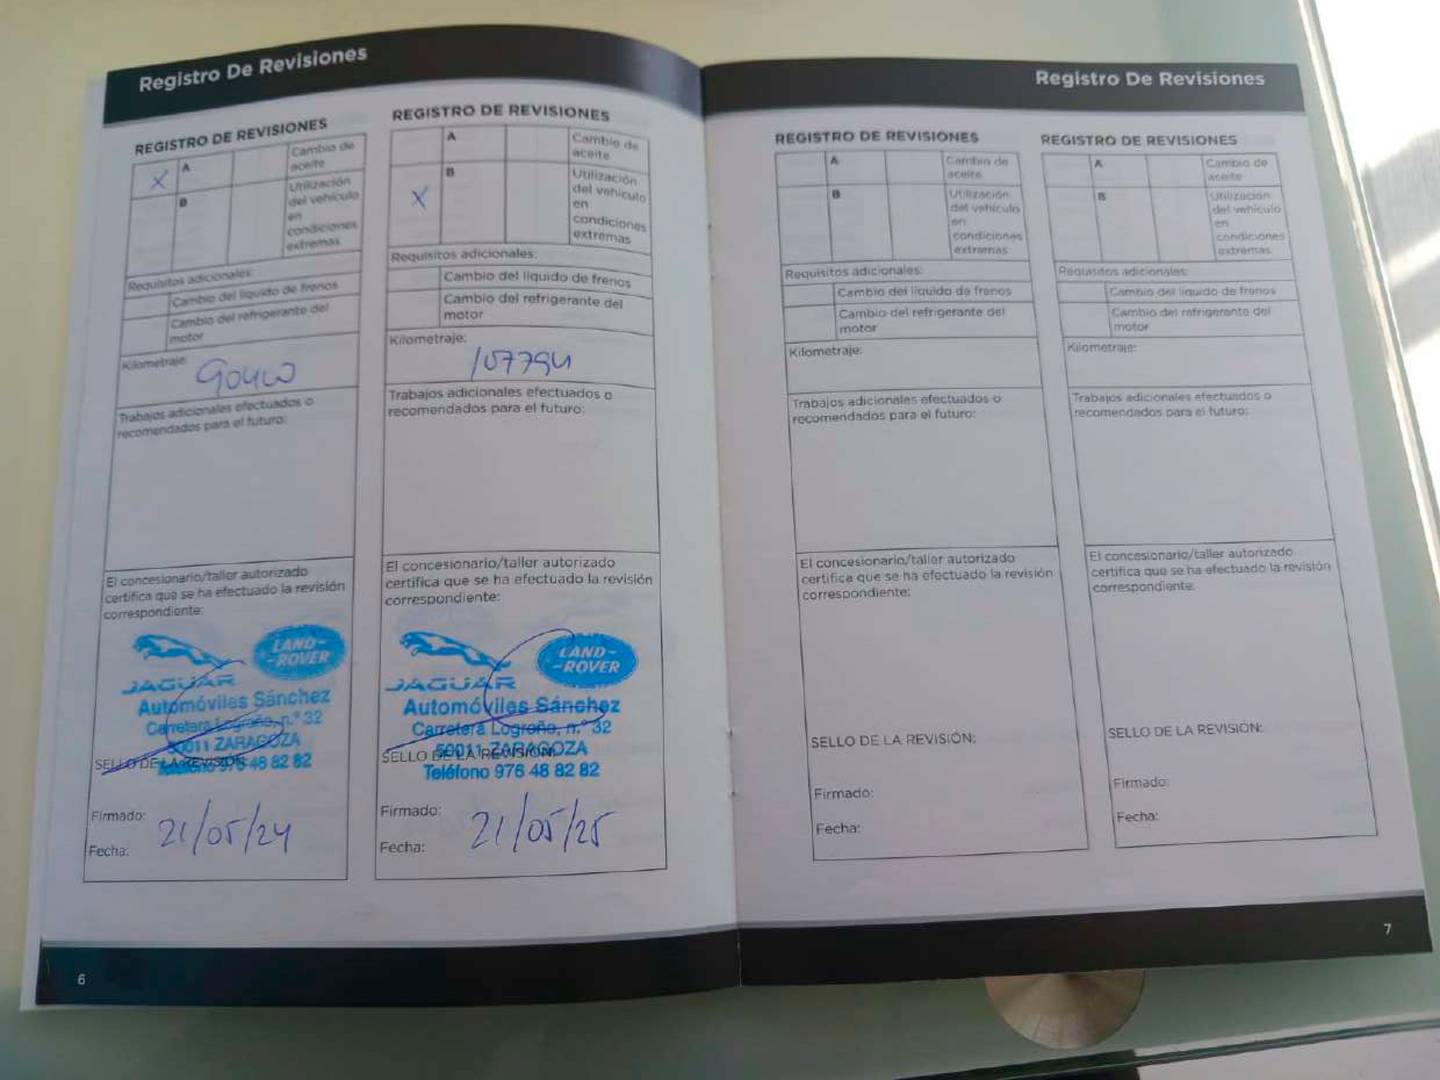 Registro De Revisiones
REGISTRO DE REVISIONES
X
A
Cambio de
aceite
B
Utilización
del vehículo
en
condiciones
extremas
Requisitos adicionales:
Cambio del líquido de frenos
Cambio del refrigerante del
motor
Kilometraje:
Trabajos adicionales efectuados o
recomendados para el futuro:
El concesionario/taller autorizado
certifica que se ha efectuado la revisión
correspondiente:
LAND-
-ROVER
JAGUAR
Automóviles Sánchez
Carretera Logroño, n.º 32
50011 ZARAGOZA
Teléfono 976 48 82 82
SELLO DE LA REVISIÓN:
Firmado:
Fecha:
21/05/24
REGISTRO DE REVISIONES
A
Cambio de
aceite
X
B
Utilización
del vehículo
en
condiciones
extremas
Requisitos adicionales:
Cambio del líquido de frenos
Cambio del refrigerante del
motor
Kilometraje:
107794
Trabajos adicionales efectuados o
recomendados para el futuro:
El concesionario/taller autorizado
certifica que se ha efectuado la revisión
correspondiente:
LAND-
-ROVER
JAGUAR
Automóviles Sánchez
Carretera Logroño, n.º 32
50011 ZARAGOZA
SELLO DE LA REVISIÓN:
Teléfono 976 48 82 82
Firmado:
Fecha:
21/05/25
6
Registro De Revisiones
REGISTRO DE REVISIONES
A
Cambio de
aceite
B
Utilización
del vehículo
en
condiciones
extremas
Requisitos adicionales:
Cambio del líquido de frenos
Cambio del refrigerante del
motor
Kilometraje:
Trabajos adicionales efectuados o
recomendados para el futuro:
El concesionario/taller autorizado
certifica que se ha efectuado la revisión
correspondiente:
SELLO DE LA REVISIÓN:
Firmado:
Fecha:
REGISTRO DE REVISIONES
A
Cambio de
aceite
B
Utilización
del vehículo
en
condiciones
extremas
Requisitos adicionales:
Cambio del líquido de frenos
Cambio del refrigerante del
motor
Kilometraje:
Trabajos adicionales efectuados o
recomendados para el futuro:
El concesionario/taller autorizado
certifica que se ha efectuado la revisión
correspondiente:
SELLO DE LA REVISIÓN:
Firmado:
Fecha:
7